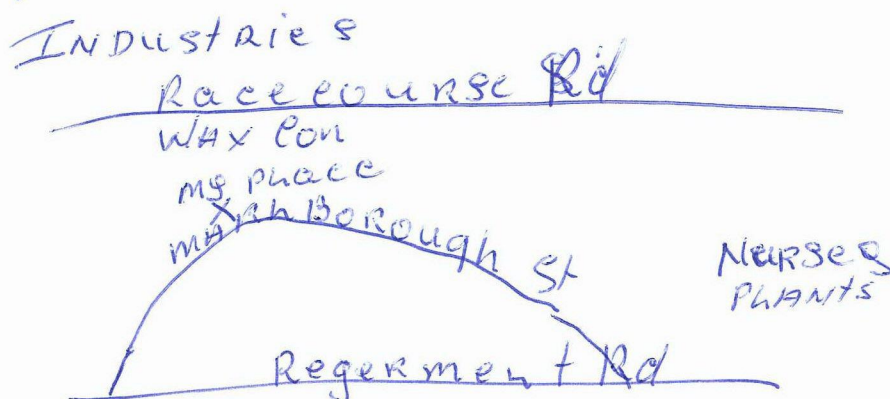 INDUstRies
Racecourse Rd
WAX Con
my PLace
X
MARLBOROUgh St
NURSeS
PLANTS
Regerment Rd